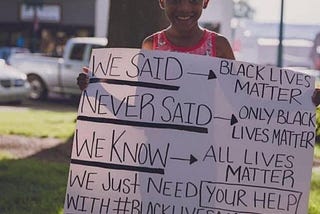 WE SAID → BLACK LIVES
MATTER
NEVER SAID → ONLY BLACK
LIVES MATTER
WE KNOW → ALL LIVES
MATTER
WE JUST NEED YOUR HELP
WITH #BLACKLIVES